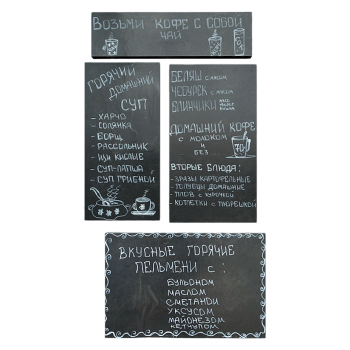 Возьми кофе с собой
чай
Горячий
домашний
суп
- харчо
- солянка
- борщ
- рассольник
- щи кислые
- суп-лапша
- суп грибной
Беляш с мясом
Чебурек с мясом
Блинчики мясо
творог
Домашний кофе
с молоком
и
без
70
Вторые блюда:
- зразы картофельные
- голубцы домашние
- плов с курочкой
- котлеты с пюрешкой
Вкусные горячие
пельмени с:
бульоном
маслом
сметаной
уксусом
майонезом
кетчупом